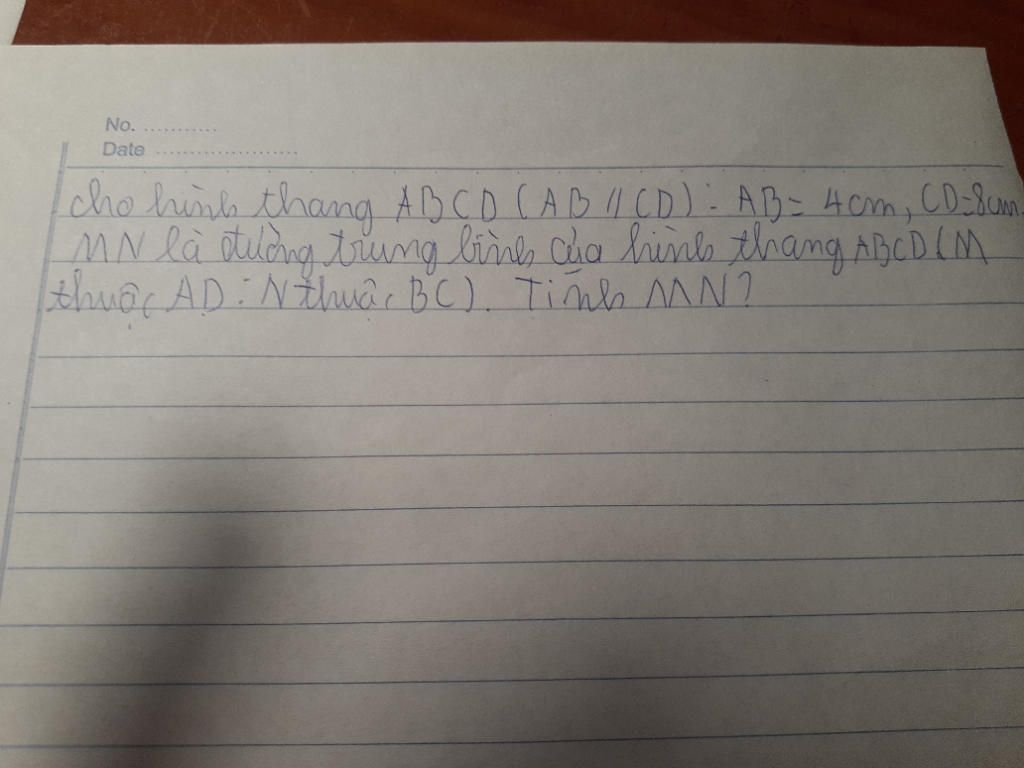 No. ...........
Date ......................
Cho hình thang ABCD (AB // CD) : AB = 4cm, CD=8cm.
MN là đường trung bình của hình thang ABCD (M
thuộc AD : N thuộc BC). Tính MN?